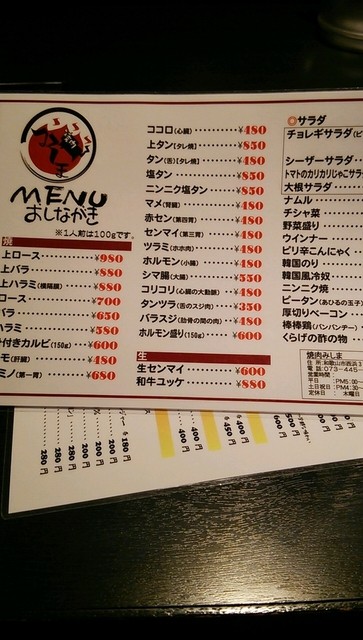 みしま
MENU
おしながき
※1人前は100gです。
焼
上ロース ¥980
上バラ ¥880
上ハラミ(横隔膜) ¥880
ロース ¥700
バラ ¥650
ハラミ ¥580
付きカルビ(150g) ¥600
モ(肝臓) ¥480
ミノ(第一胃) ¥680
ココロ(心臓) ¥480
上タン[タレ焼] ¥850
タン(舌)[タレ焼] ¥480
塩タン ¥850
ニンニク塩タン ¥850
マメ(腎臓) ¥480
赤セン(第四胃) ¥480
センマイ(第三胃) ¥480
ツラミ(ホホ肉) ¥480
ホルモン(小腸) ¥480
シマ腸(大腸) ¥550
コリコリ(心臓の大動脈) ¥480
タンツラ(舌のスジ肉) ¥350
バラスジ(肋骨の間の肉) ¥480
ホルモン盛り(150g) ¥600
生
生センマイ ¥600
和牛ユッケ ¥880
◎サラダ
チョレギサラダ(ピ
シーザーサラダ
トマトのカリカリじゃこサラ
大根サラダ
ナムル
チシャ菜
野菜盛り
ウインナー
ピリ辛こんにゃく
韓国のり
韓国風冷奴
ニンニク焼
ピータン(あひるの玉子
厚切りベーコン
棒棒鶏(バンバンチー
くらげの酢の物
焼肉みしま
住所:和歌山市西浜3
電話:073-445-
営業時間
平日:PM5:00
土日祝日:PM4:30
定休日:木曜日
280円
280円
280円
200円
200円
200円
180円
400円
400円
450円
500円
600円